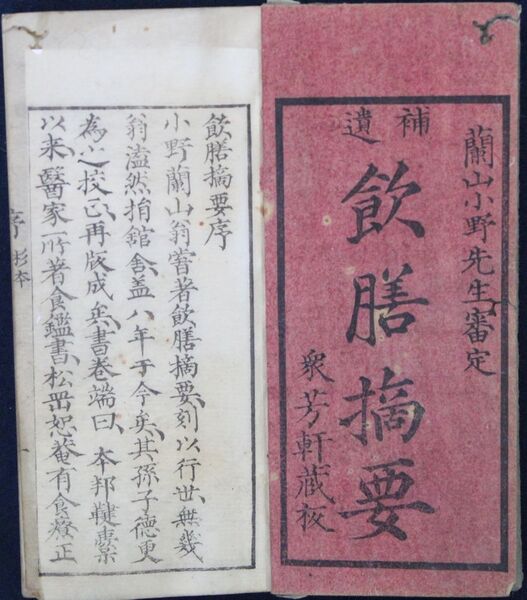 蘭山小野先生審定
補遺
飲膳摘要
衆芳軒蔵板
飲膳摘要序
小野蘭山翁嘗著飲膳摘要、刻以行世、無幾
翁溘然捐舘舎、盖八年于今矣、其孫子德更
為之挍正、再版成矣、書卷端曰、本邦鞬櫜
以来、醫家所著食鑑書、松岡恕菴有食療正
序 杉本